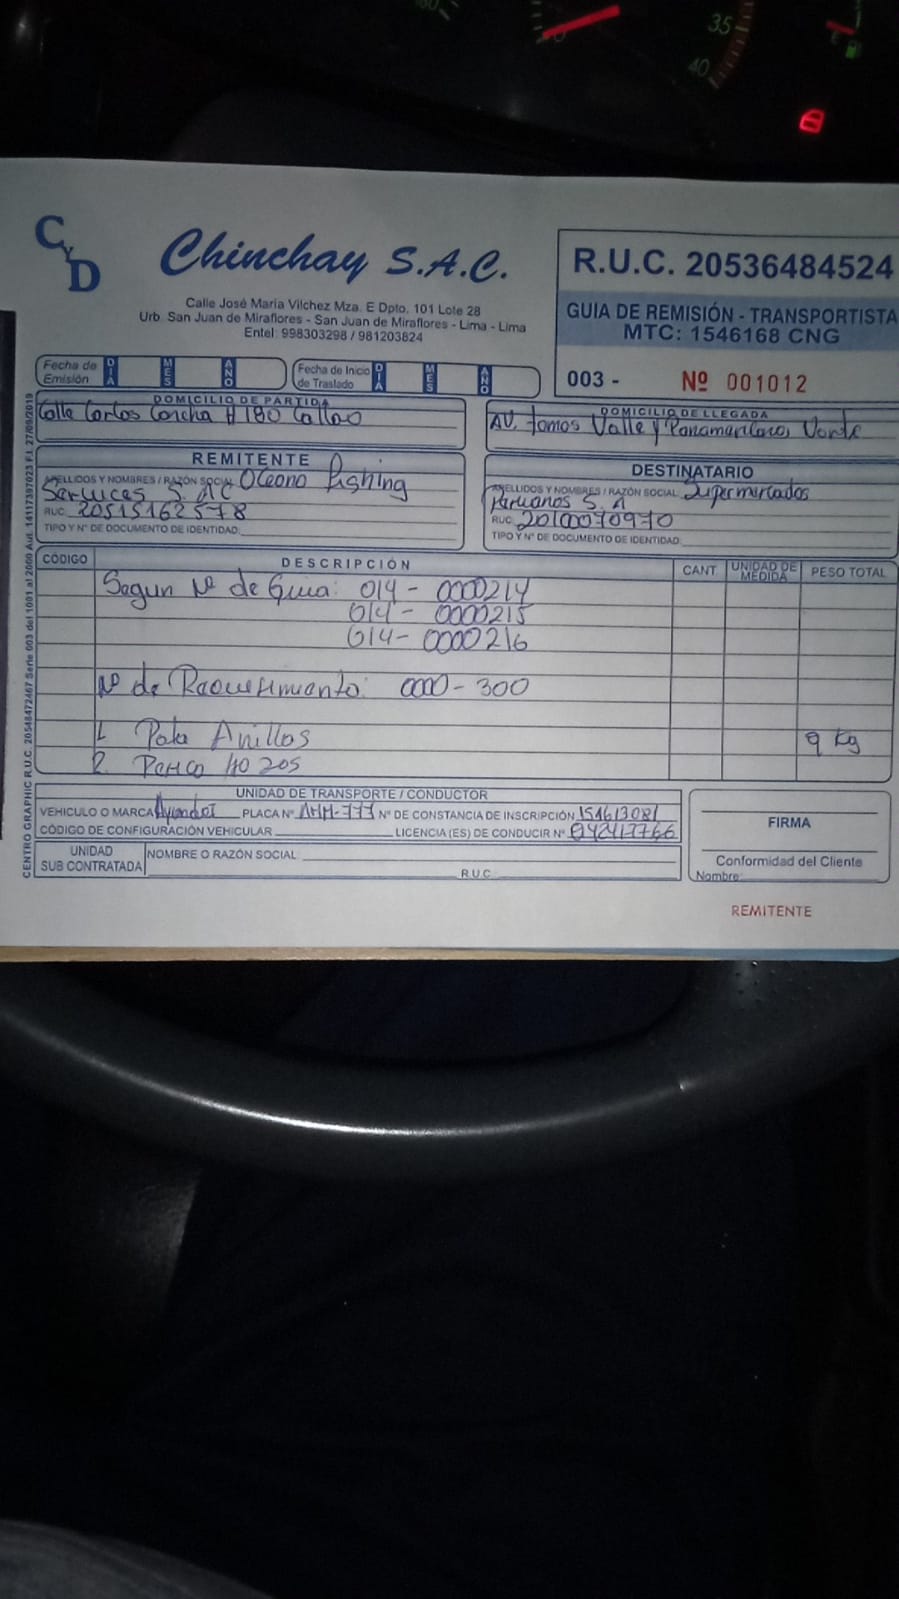 CyD
Chinchay S.A.C.
Calle José María Vilchez Mza. E Dpto. 101 Lote 28
Urb. San Juan de Miraflores - San Juan de Miraflores - Lima - Lima
Entel: 998303298 / 981203824
R.U.C. 20536484524
GUIA DE REMISIÓN - TRANSPORTISTA
MTC: 1546168 CNG
003 - Nº 001012
Fecha de Emisión DIA MES AÑO
Fecha de Inicio de Traslado DIA MES AÑO
DOMICILIO DE PARTIDA
Calle Carlos Concha # 180 Callao
DOMICILIO DE LLEGADA
AV. tomas Valle y Panamericana Norte
REMITENTE
APELLIDOS Y NOMBRES / RAZÓN SOCIAL Oceano Fishing
Services S.AC
RUC. 20515162578
TIPO Y Nº DE DOCUMENTO DE IDENTIDAD
DESTINATARIO
APELLIDOS Y NOMBRES / RAZÓN SOCIAL Supermercados
Peruanos S.A
RUC 20100070970
TIPO Y Nº DE DOCUMENTO DE IDENTIDAD:
CÓDIGO DESCRIPCIÓN CANT. UNIDAD DE MEDIDA PESO TOTAL
Segun Nº de Guia: 014 - 0000214
014 - 0000215
014 - 0000216
Nº de Requerimiento: 0000 - 300
1. Pota Anillos 9 Kg
2. Perico
UNIDAD DE TRANSPORTE / CONDUCTOR
VEHICULO O MARCA PLACA Nº AHM-777 Nº DE CONSTANCIA DE INSCRIPCIÓN 151613081
CÓDIGO DE CONFIGURACIÓN VEHICULAR LICENCIA (ES) DE CONDUCIR Nº
UNIDAD SUB CONTRATADA NOMBRE O RAZÓN SOCIAL
R.U.C.
FIRMA
Conformidad del Cliente
Nombre:
REMITENTE
CENTRO GRAPHIC R.U.C. 20548472467 Serie 003 del 1001 al 2000 Aut. 14117397023 F.I. 27/09/2019
35
40